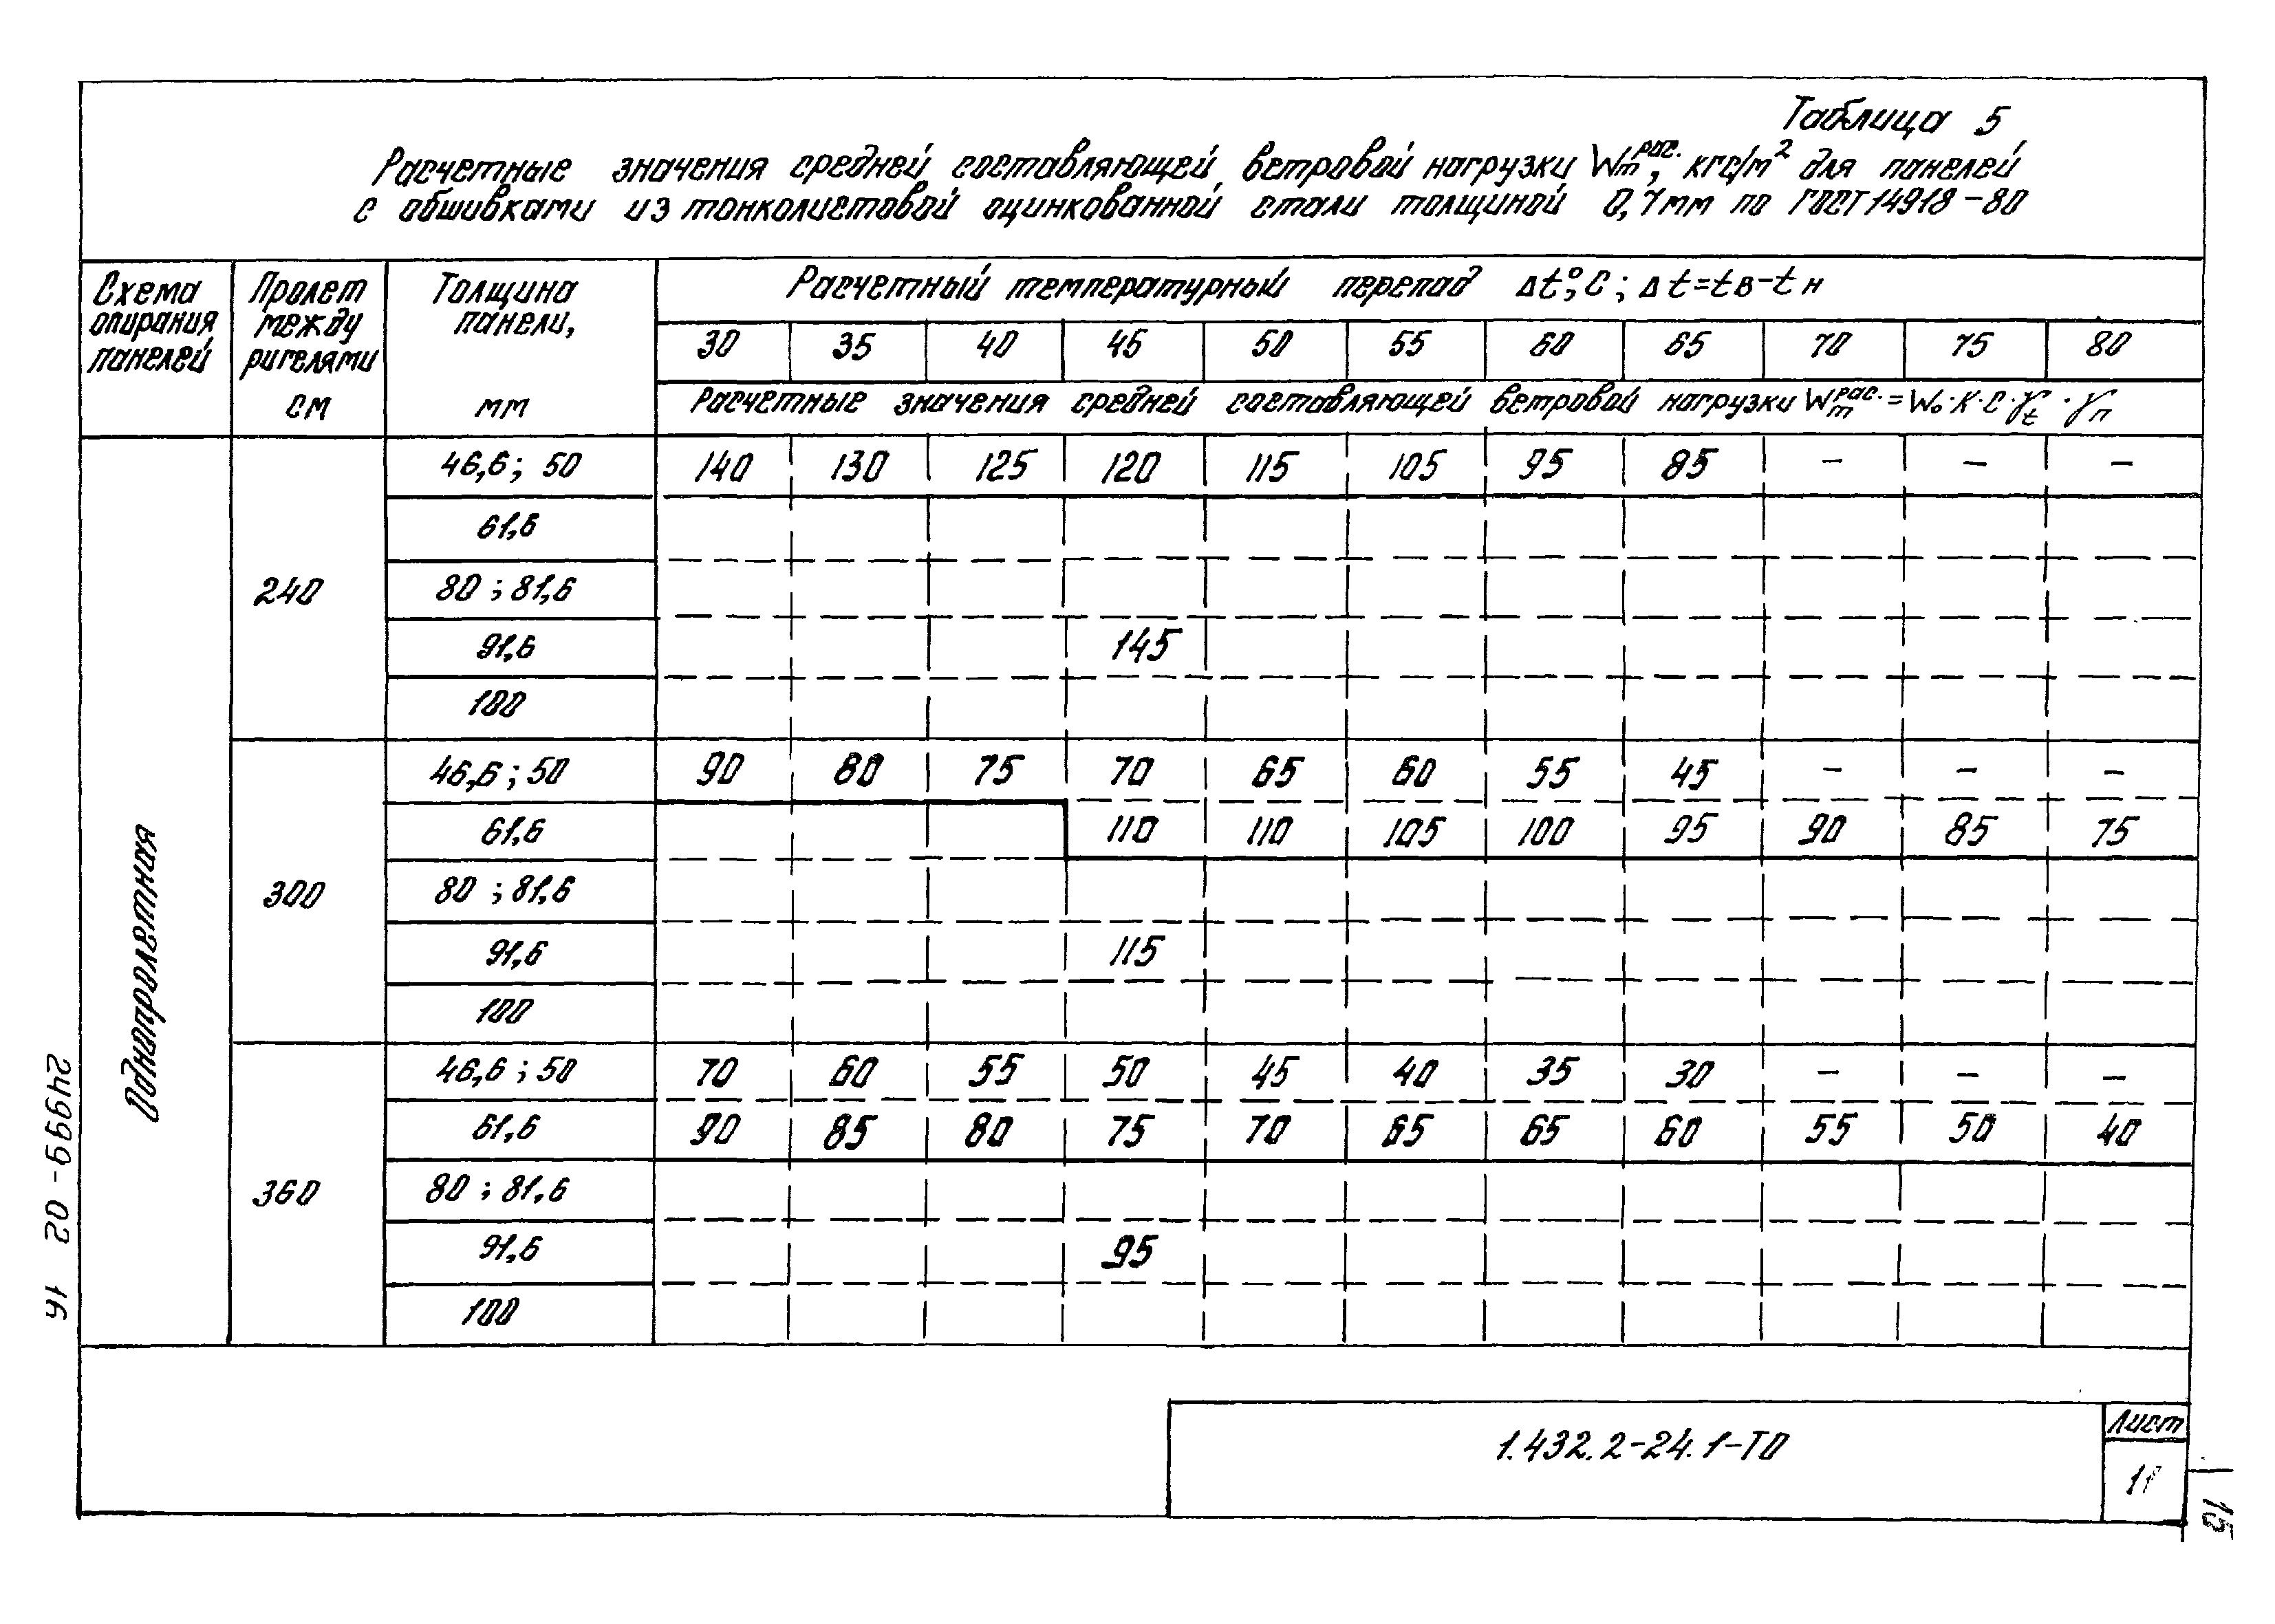 Таблица 5
Расчетные значения средней составляющей ветровой нагрузки Wm рас., кгс/м² для панелей
с обшивками из тонколистовой оцинкованной стали толщиной 0,7мм по ГОСТ 14918-80
Схема опирания панелей
Пролет между ригелями см
Толщина панели, мм
Расчетный температурный перепад Δt°,С; Δt=tв-tн
30 35 40 45 50 55 60 65 70 75 80
Расчетные значения средней составляющей ветровой нагрузки Wm рас.=W₀·К·С·γt·γп
Однопролетная
240
46,6; 50 140 130 125 120 115 105 95 85 – – –
61,6
80 ; 81,6
91,6 145
100
300
46,6 ; 50 90 80 75 70 65 60 55 45 – – –
61,6 110 110 105 100 95 90 85 75
80 ; 81,6
91,6 115
100
360
46,6 ; 50 70 60 55 50 45 40 35 30 – – –
61,6 90 85 80 75 70 65 65 60 55 50 40
80 ; 81,6
91,6 95
100
1.432.2-24.1-ТО
Лист
24999-02 16
15